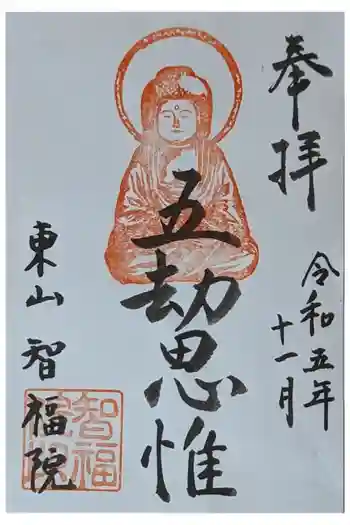 奉拝
令和五年
十一月
五劫思惟
東山 智福院
智福
院印